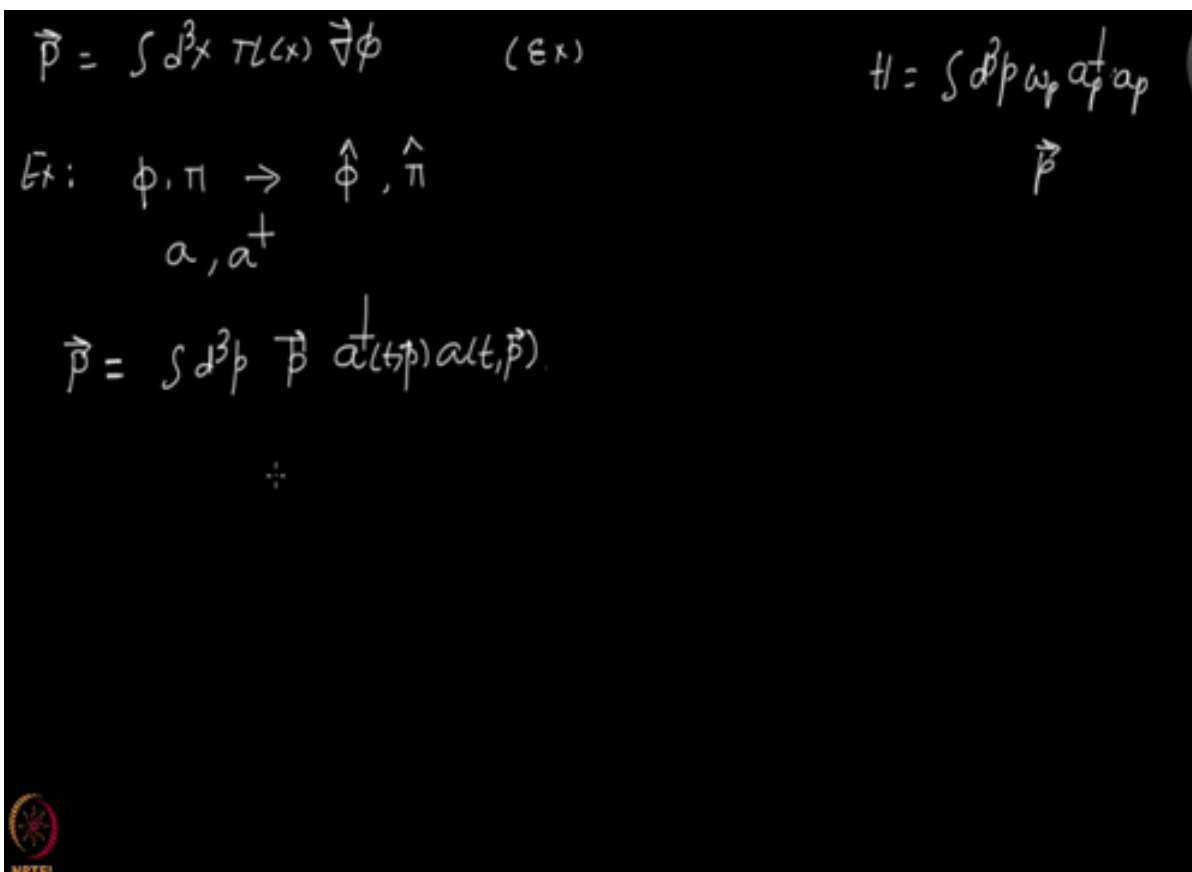 P⃗ = ∫ d³x π(x) ∇⃗ϕ (Ex)
H = ∫ d³p ωₚ a†ₚ aₚ
p⃗
Ex: ϕ, π → ϕ̂, π̂
a, a†
P⃗ = ∫ d³p p⃗ a†(t,p⃗) a(t,p⃗).
NPTEL